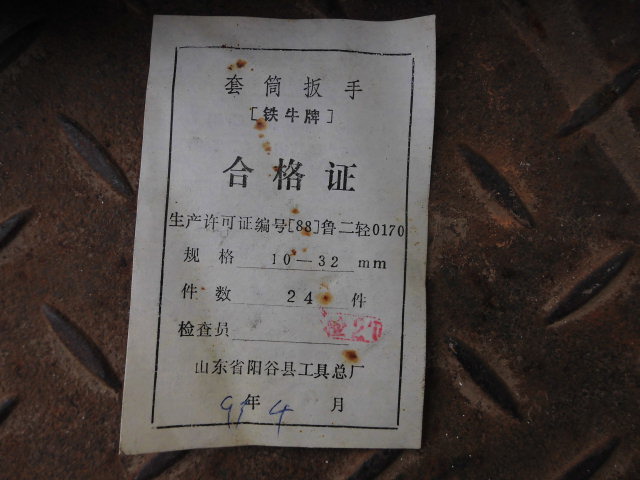 套筒扳手
[铁牛牌]
合格证
生产许可证编号[88]鲁二轻0170
规格 10—32 mm
件数 24 件
检查员 21
山东省阳谷县工具总厂
91年 4 月